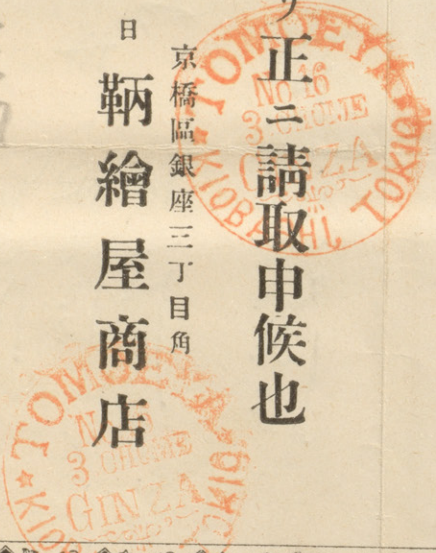 リ正ニ請取申候也
京橋區銀座三丁目角
日
鞆繪屋商店
TOMOEYA
No 16
3 CHOME
GINZA
KIOBASHI TOKIO
TOMOEYA
No 16
3 CHOME
GINZA
KIO
TOKIO